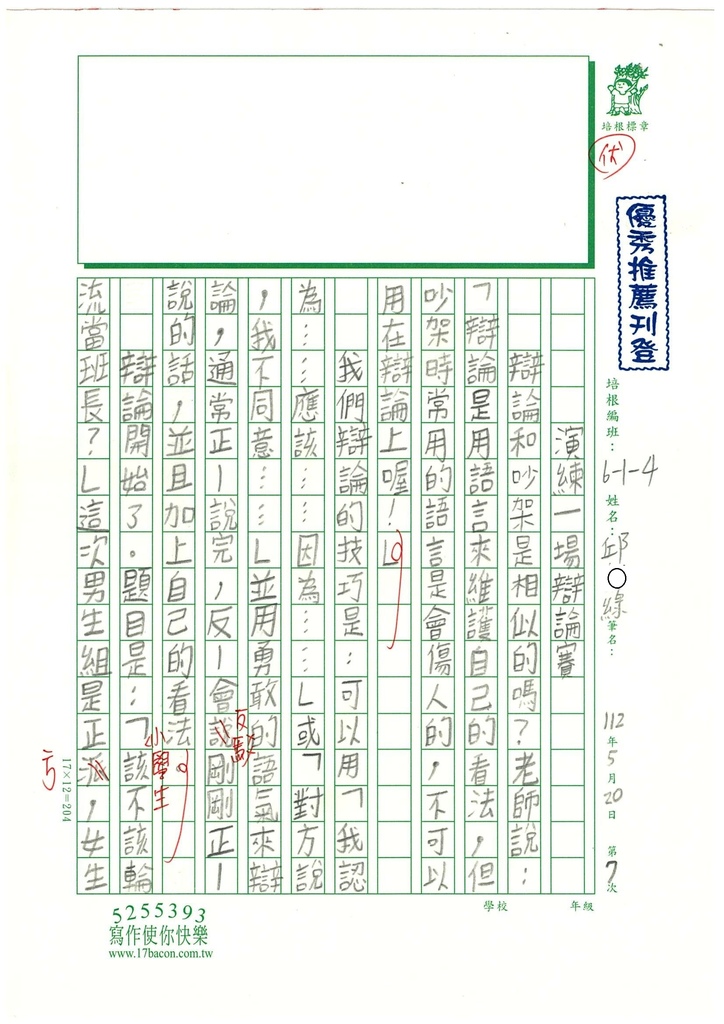 培根標章
伏
優秀推薦刊登
培根編班：6-1-4 姓名：邱○綠 筆名：
112年5月20日 第7次
學校 年級
演練一場辯論賽
辯論和吵架是相似的嗎？老師說：
「辯論是用語言來維護自己的看法，但
吵架時常用的語言是會傷人的，不可以
用在辯論上喔！」
我們辯論的技巧是：可以用「我認
為……應該……因為……」或「對方說
，我不同意……」並用勇敢的語氣來辯
論，通常正一說完，反一會說剛剛正一
反駁
說的話，並且加上自己的看法
辯論開始了。題目是：「該不該輪
小學生
流當班長？」這次男生組是正派，女生
方
17×12=204
5255393
寫作使你快樂
www.17bacon.com.tw